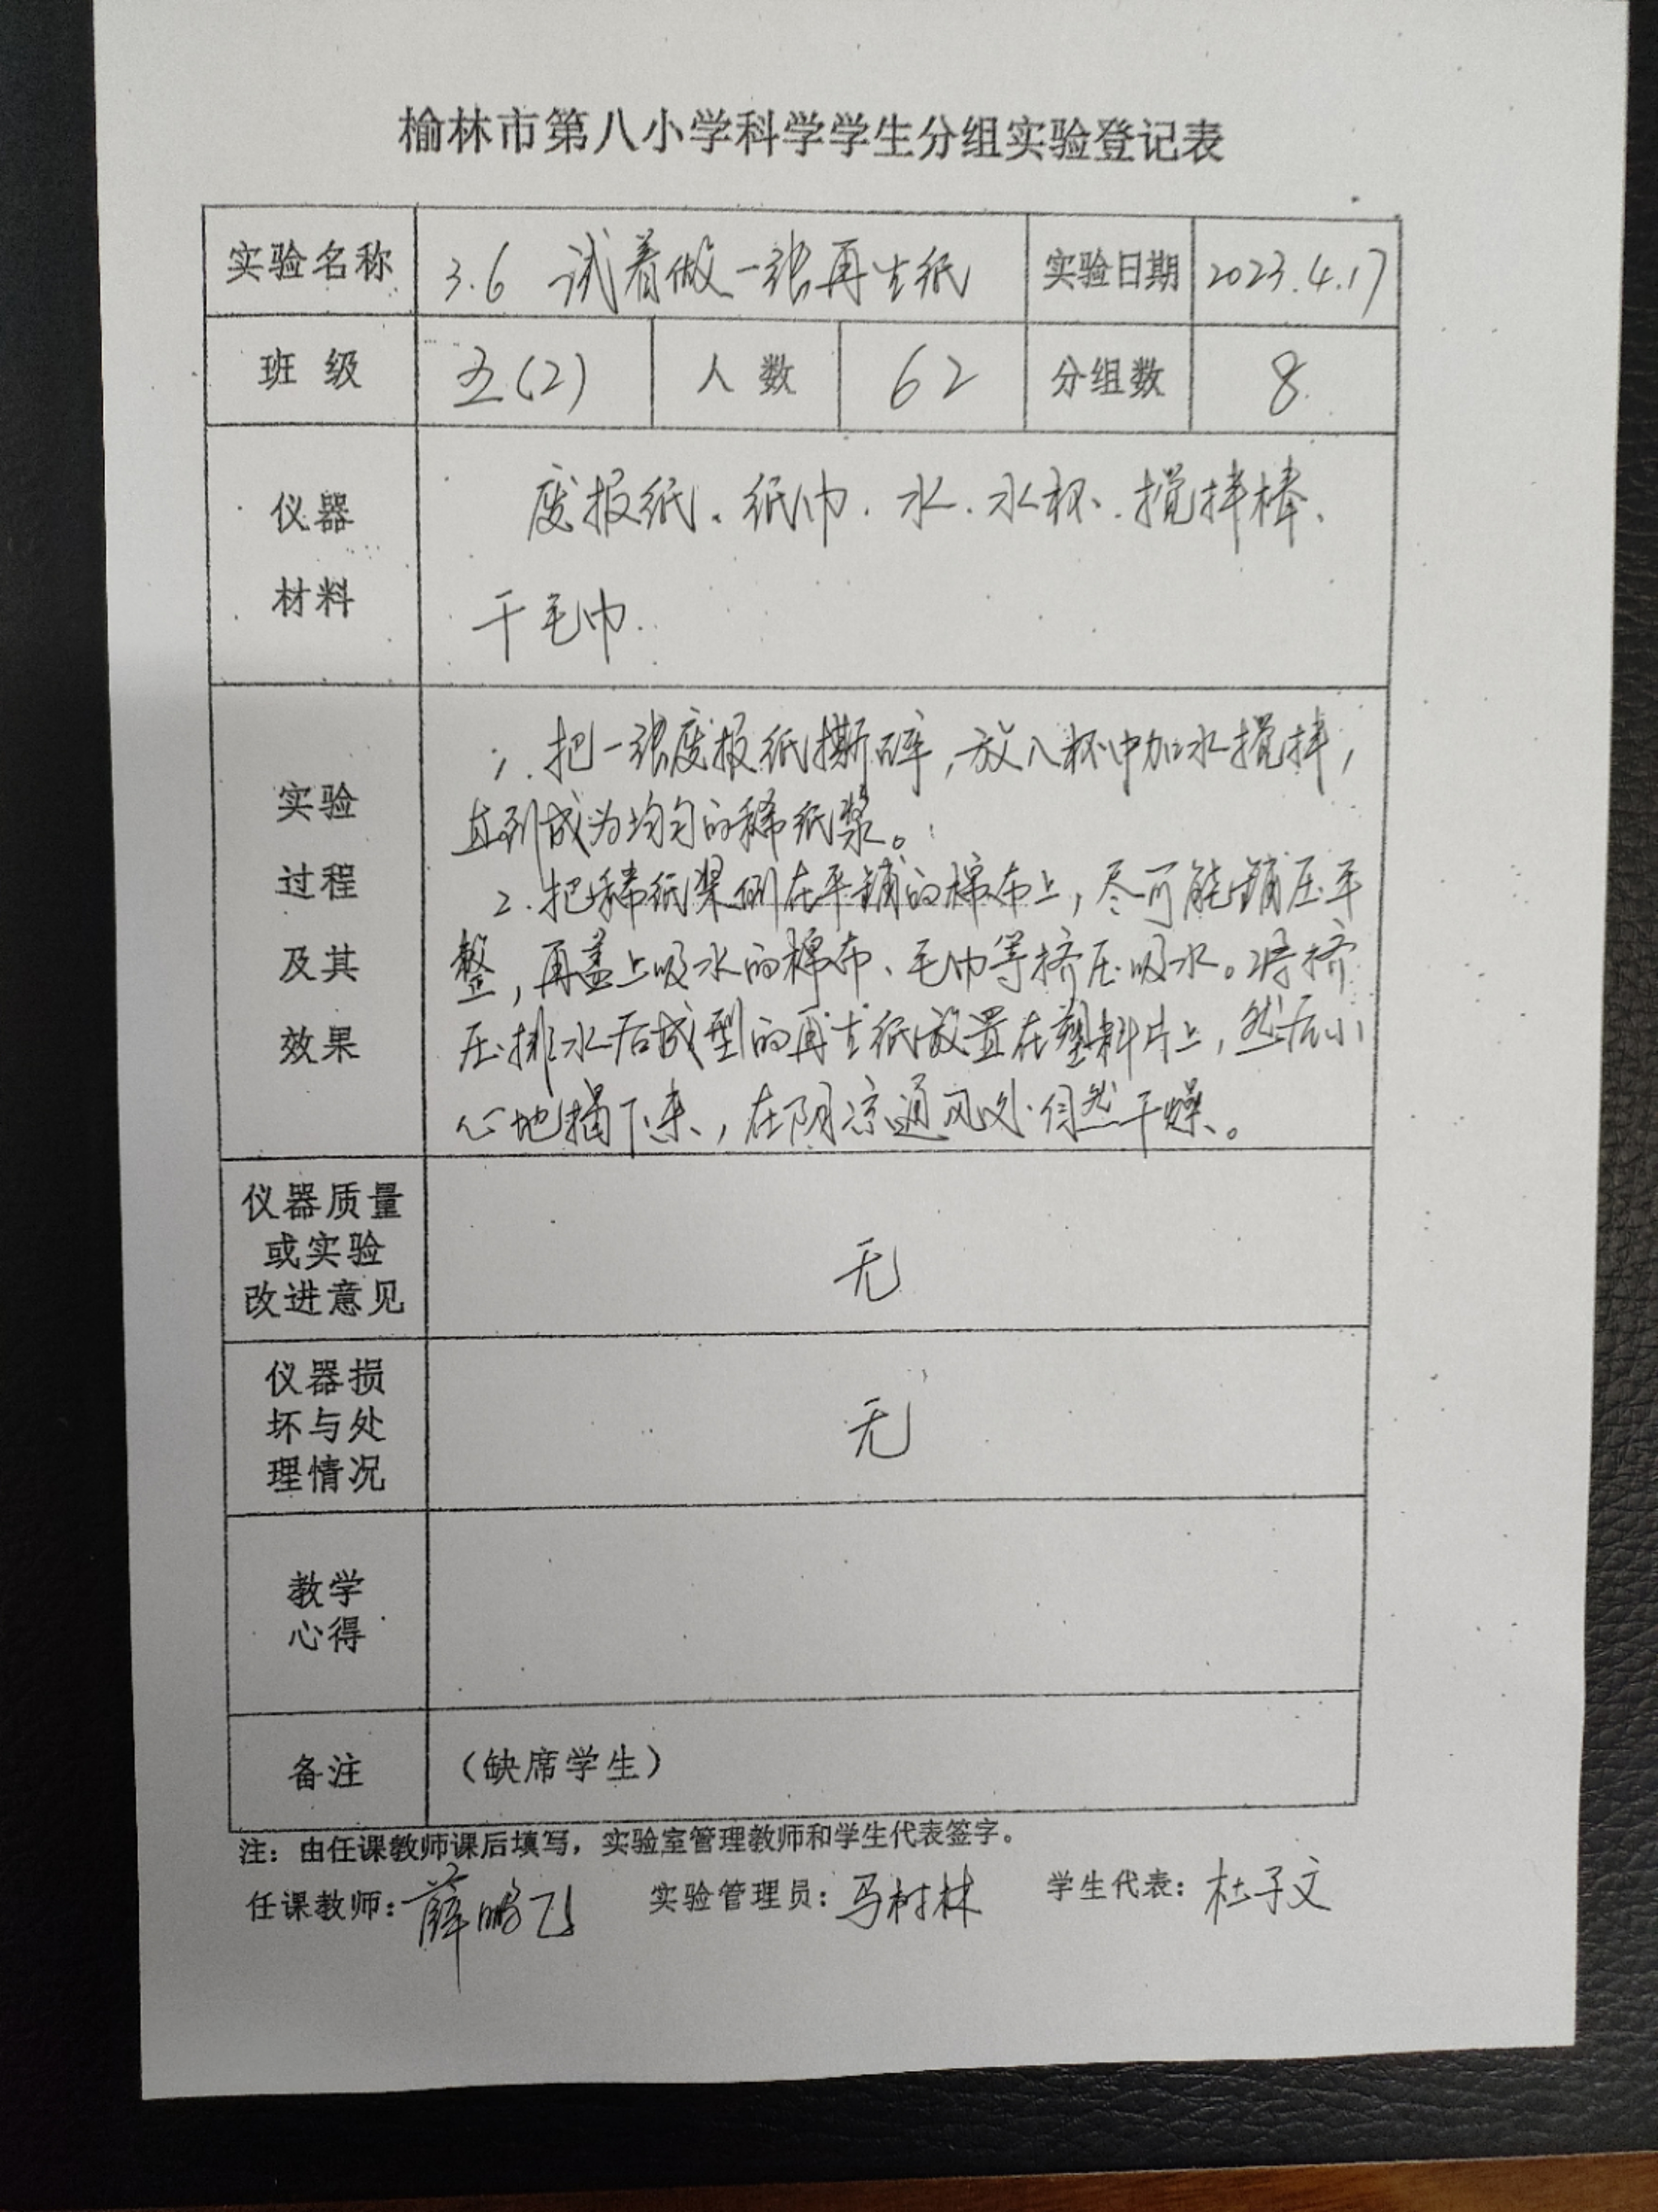 榆林市第八小学科学学生分组实验登记表
实验名称 3.6 试着做一张再生纸 实验日期 2023.4.17
班 级 五(2) 人 数 62 分组数 8
仪器
材料
废报纸、纸巾、水、水杯、搅拌棒、
干毛巾.
实验
过程
及其
效果
1. 把一张废报纸撕碎,放入杯中加水搅拌,
直到成为均匀的稀纸浆。
2. 把稀纸浆倒在平铺的棉布上,尽可能铺压平
整,再盖上吸水的棉布、毛巾等挤压吸水。将挤
压排水后成型的再生纸放置在塑料片上,然后小
心地揭下来,在阴凉通风处自然干燥。
仪器质量
或实验
改进意见
无
仪器损
坏与处
理情况
无
教学
心得
备注 (缺席学生)
注:由任课教师课后填写,实验室管理教师和学生代表签字。
任课教师:薛鹏飞 实验管理员:马树林 学生代表:杜子文